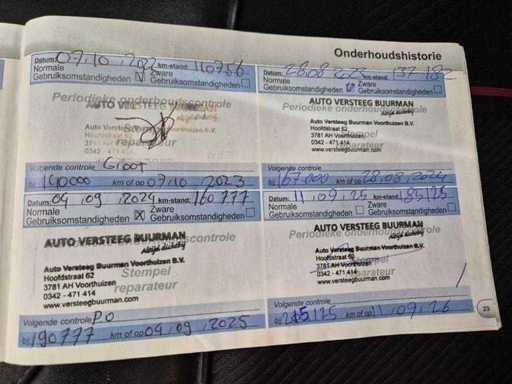 Onderhoudshistorie
Datum: 07.10.2022 km-stand: 110756
Normale Zware
Gebruiksomstandigheden Gebruiksomstandigheden
Periodieke onderhoudscontrole
AUTO VERSTEEG
Auto Versteeg Buurman Voorthuizen B.V.
Hoofdstraat 52
3781 AH Voorthuizen
0342 - 471 414
Stempel
reparateur
Volgende controle Groot
bij 140000 km of op 07.10.2023
Datum: 28.08.2023 km-stand: 137
Normale Zware
Gebruiksomstandigheden Gebruiksomstandigheden
Periodieke onderhoudscontrole
AUTO VERSTEEG BUURMAN
altijd dichtbij
Auto Versteeg Buurman Voorthuizen B.V.
Hoofdstraat 52
3781 AH Voorthuizen
0342 - 471 414
www.versteegbuurman.com
Stempel
reparateur
Volgende controle
bij 167000 km of op 28.08.2024
Datum: 04.09.2024 km-stand: 160777
Normale Zware
Gebruiksomstandigheden Gebruiksomstandigheden
AUTO VERSTEEG BUURMAN
altijd dichtbij
Auto Versteeg Buurman Voorthuizen B.V.
Hoofdstraat 52
3781 AH Voorthuizen
0342 - 471 414
www.versteegbuurman.com
Stempel
reparateur
Volgende controle PO
bij 190777 km of op 04.09.2025
Datum: 11.09.25 km-stand: 185125
Normale Zware
Gebruiksomstandigheden Gebruiksomstandigheden
AUTO VERSTEEG BUURMAN
altijd dichtbij
Auto Versteeg Buurman Voorthuizen B.V.
Hoofdstraat 52
3781 AH Voorthuizen
0342 - 471 414
www.versteegbuurman.com
Stempel
reparateur
Volgende controle
bij 215125 km of op 11.09.26
23